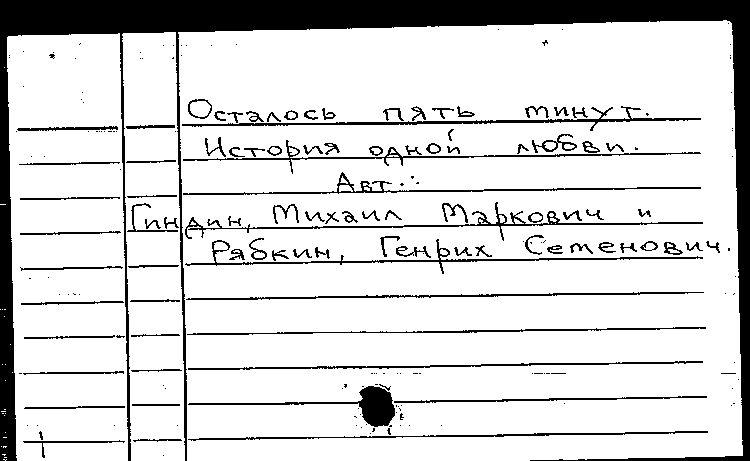 Осталось пять минут.
История одной любви.
Авт.:
Гиндин, Михаил Маркович и
Рябкин, Генрих Семенович.